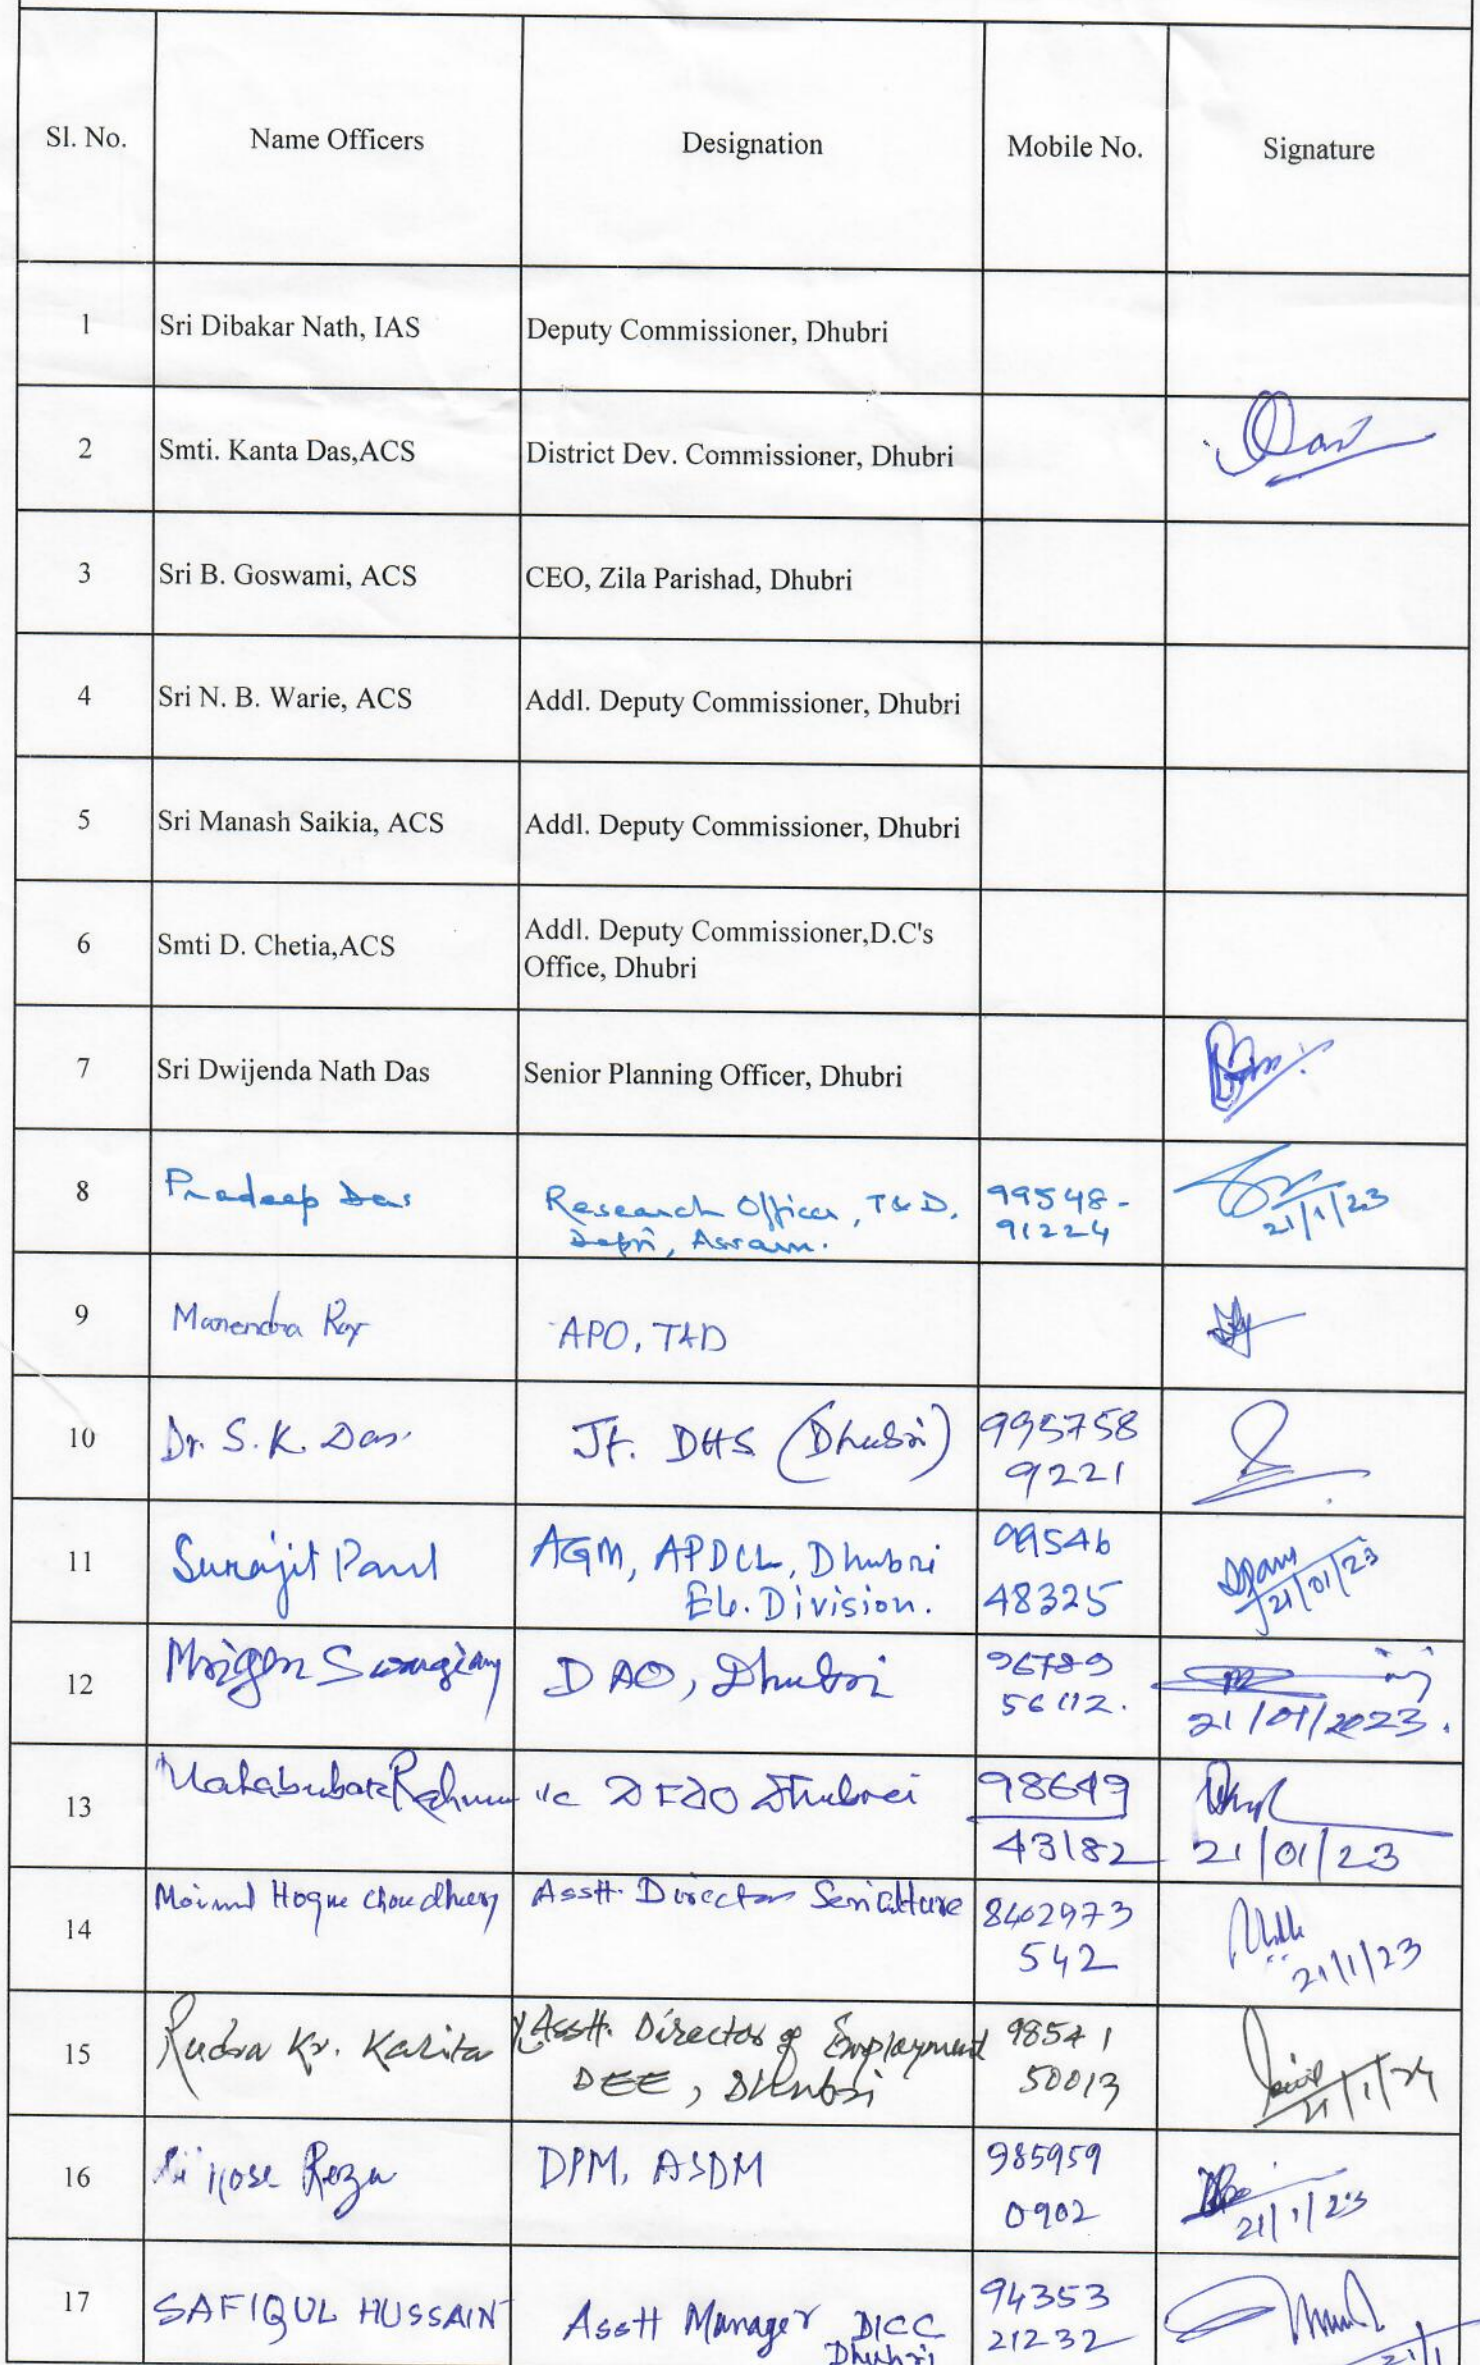 Sl. No. Name Officers Designation Mobile No. Signature
1 Sri Dibakar Nath, IAS Deputy Commissioner, Dhubri
2 Smti. Kanta Das,ACS District Dev. Commissioner, Dhubri
3 Sri B. Goswami, ACS CEO, Zila Parishad, Dhubri
4 Sri N. B. Warie, ACS Addl. Deputy Commissioner, Dhubri
5 Sri Manash Saikia, ACS Addl. Deputy Commissioner, Dhubri
6 Smti D. Chetia,ACS Addl. Deputy Commissioner,D.C's
Office, Dhubri
7 Sri Dwijenda Nath Das Senior Planning Officer, Dhubri
8 Pradeep Das Research Officer, T&D. 99548-
Assam. 91224
21/1/23
9 Manendra Roy APO, T&D
10 Dr. S.K. Das. Jt. DHS (Dhubri) 995758
9221
11 Surajit Paul AGM, APDCL, Dhubri 99546
Ele. Division. 48325
21/01/23
12 Mrigen DAO, Dhubri 96789
56112.
21/01/2023.
13 Rahman i/c DFDO Dhubri 98649
43182 21/01/23
14 Hoque Choudhury Asstt. Director Sericulture 8402973
542 21/1/23
15 Rudra Kr. Kalita Asstt. Director of Employment 98541
DEE, Dhubri 50013
16 Reza DPM, ASDM 985959
0902 21/1/23
17 SAFIQUL HUSSAIN Asstt Manager DICC 94353
Dhubri 21232